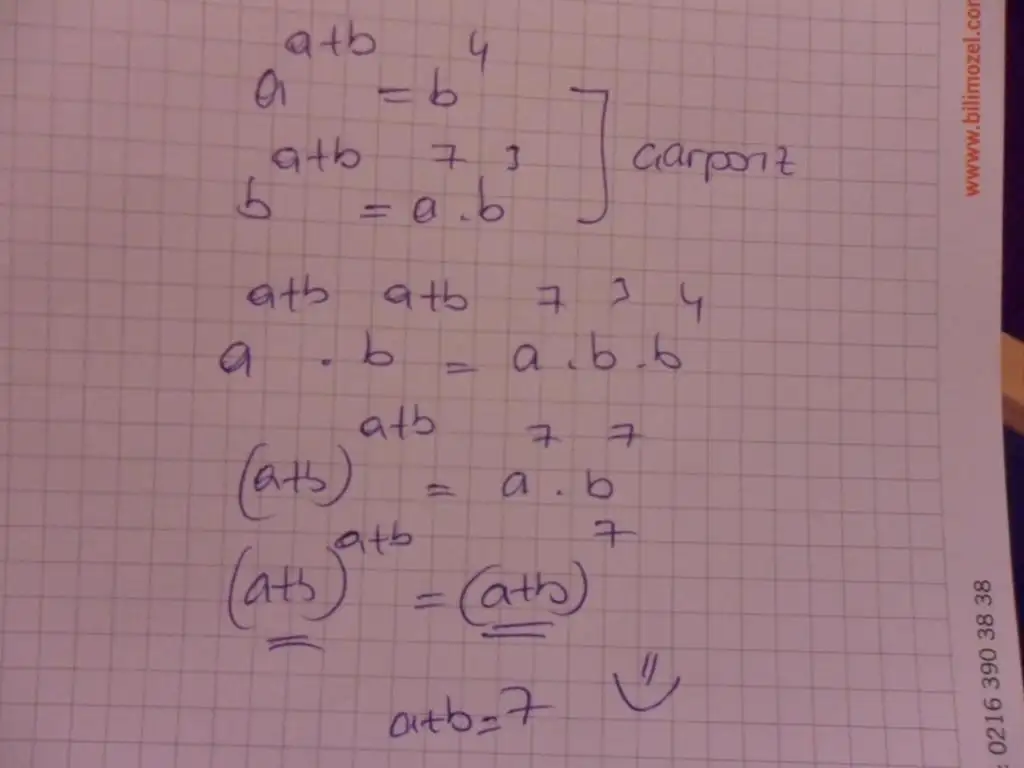 a^(a+b) = b^4
b^(a+b) = a^7 . b^3
çarparız
a^(a+b) . b^(a+b) = a^7 . b^3 . b^4
(a+b)^(a+b) = a^7 . b^7
(a+b)^(a+b) = (a+b)^7
a+b=7
www.bilimozel.com
0216 390 38 38